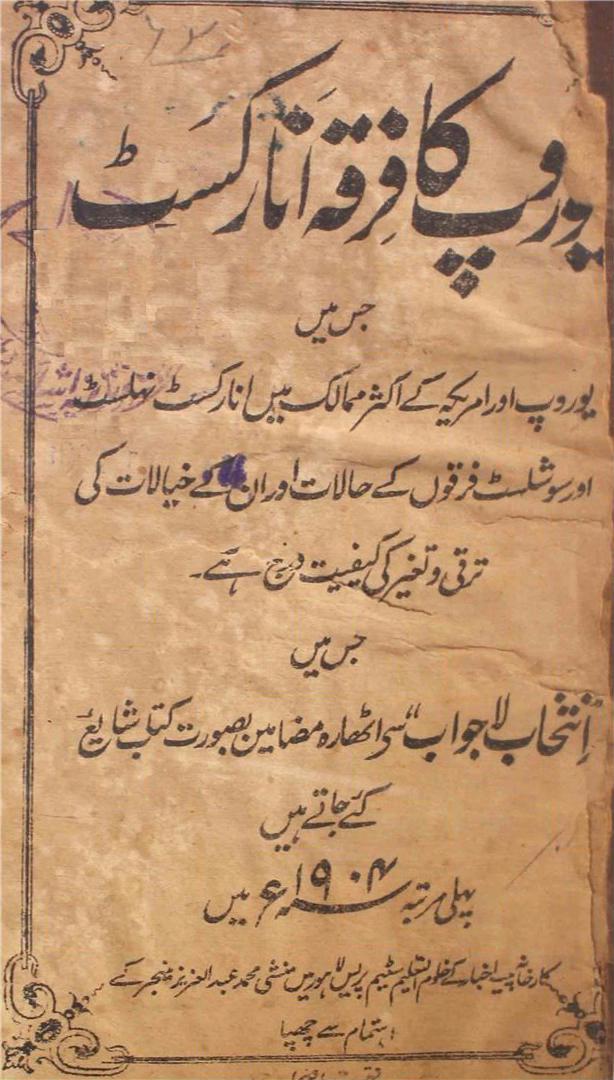 یوروپ کا فرقہ انارکسٹ
جس میں
یوروپ اور امریکہ کے اکثر ممالک میں انارکسٹ نہلسٹ
اور سوشلسٹ فرقوں کے حالات اور ان کے خیالات کی
ترقی و تغیر کی کیفیت درج ہے۔
جس میں
"اِنتخاب لا جواب" سے اٹھارہ مضامین بصورت کتاب شایع
کئے جاتے ہیں
پہلی مرتبہ سنہ ۱۹۰۴ء میں
کارخانہ پیسہ اخبار کے خادم التعلیم سٹیم پریس لاہور میں منشی محمد عبدالعزیز منیجر کے
اہتمام سے چھپا